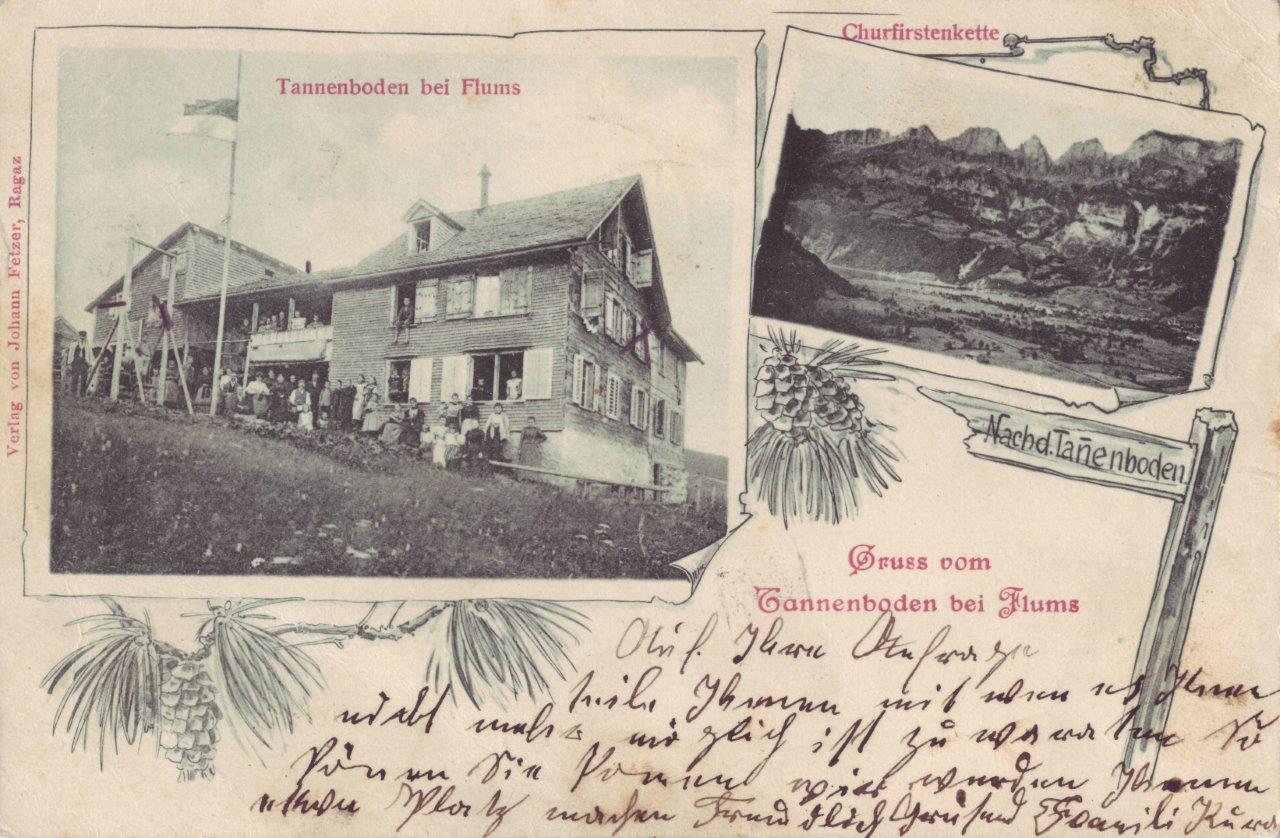 Churfirstenkette
Tannenboden bei Flums
Verlag von Johann Fetzer, Ragaz
Nach d. Tan̄enboden
Gruss vom
Tannenboden bei Flums
Auf Ihre Anfrage
teile Ihnen mit wen es Ihnen
nicht mehr möglich ist zu warten So
könen Sie komen wir werden Ihnen
etwa Platz machen Freundlich Grüsend Familie